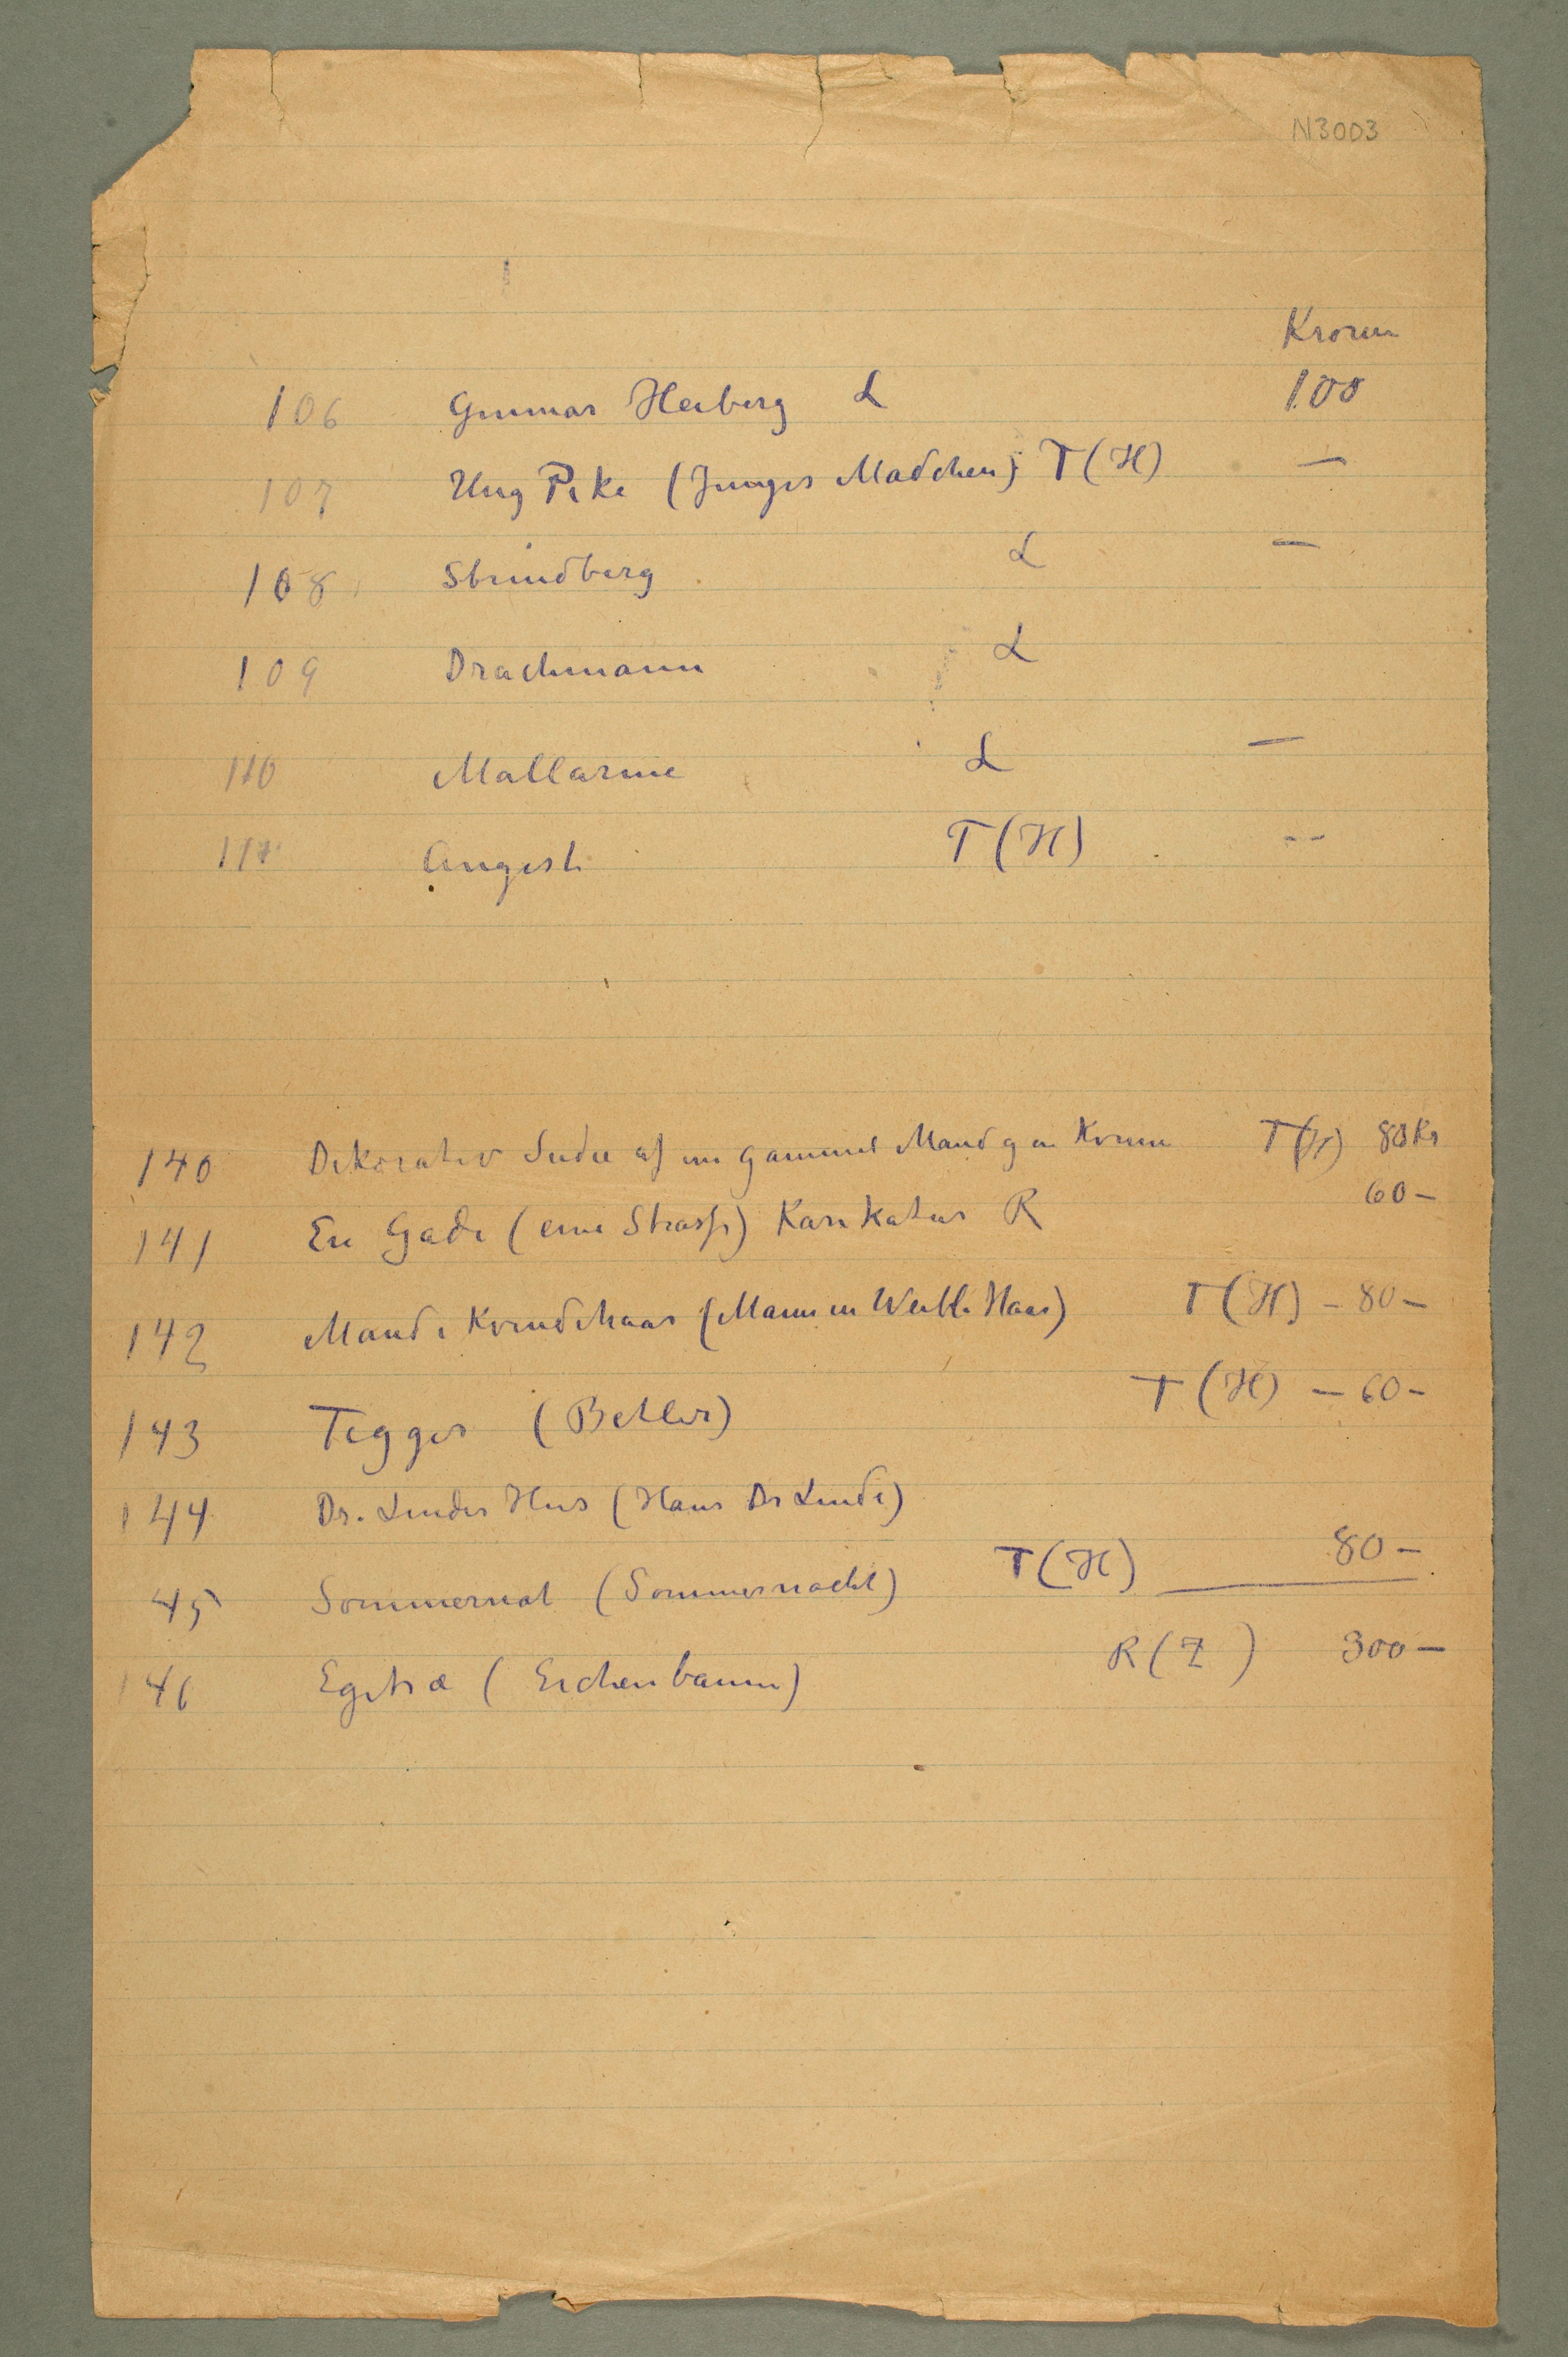 N3003
Kroner
106 Gunnar Heiberg L 100
107 Ung Pike (Junges Madchen) T (H) —
108 Strindberg L —
109 Drachmann L
110 Mallarme L —
111 Angest T (H) --
140 Dekorativ Studie af en gammel Mand og en Kvinne T (H) 80 Kr
141 En Gade (eine Strasse) Karikatur R 60 –
142 Mand i Kvindehaar (Mann in Weibl. Haar) T (H) – 80 –
143 Tigger (Betler) T (H) – 60 –
144 Dr. Lindes Hus (Haus Dr Linde)
45 Sommernat (Sommernacht) T (H) 80 –
146 Egetræ (Eichenbaum) R (Z) 300 –